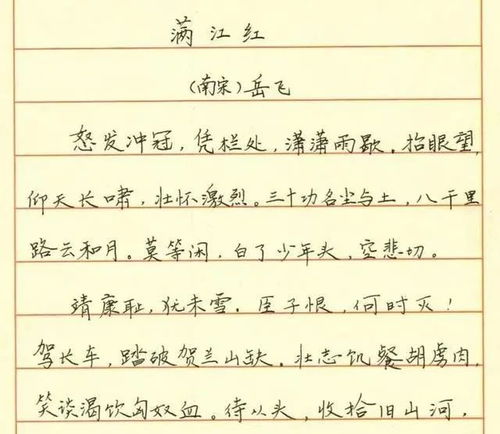 满江红
(南宋)岳飞
怒发冲冠，凭栏处，潇潇雨歇．抬眼望，
仰天长啸，壮怀激烈。三十功名尘与土，八千里
路云和月。莫等闲，白了少年头，空悲切。
靖康耻，犹未雪．臣子恨，何时灭！
驾长车，踏破贺兰山缺．壮志饥餐胡虏肉，
笑谈渴饮匈奴血。待从头，收拾旧山河，